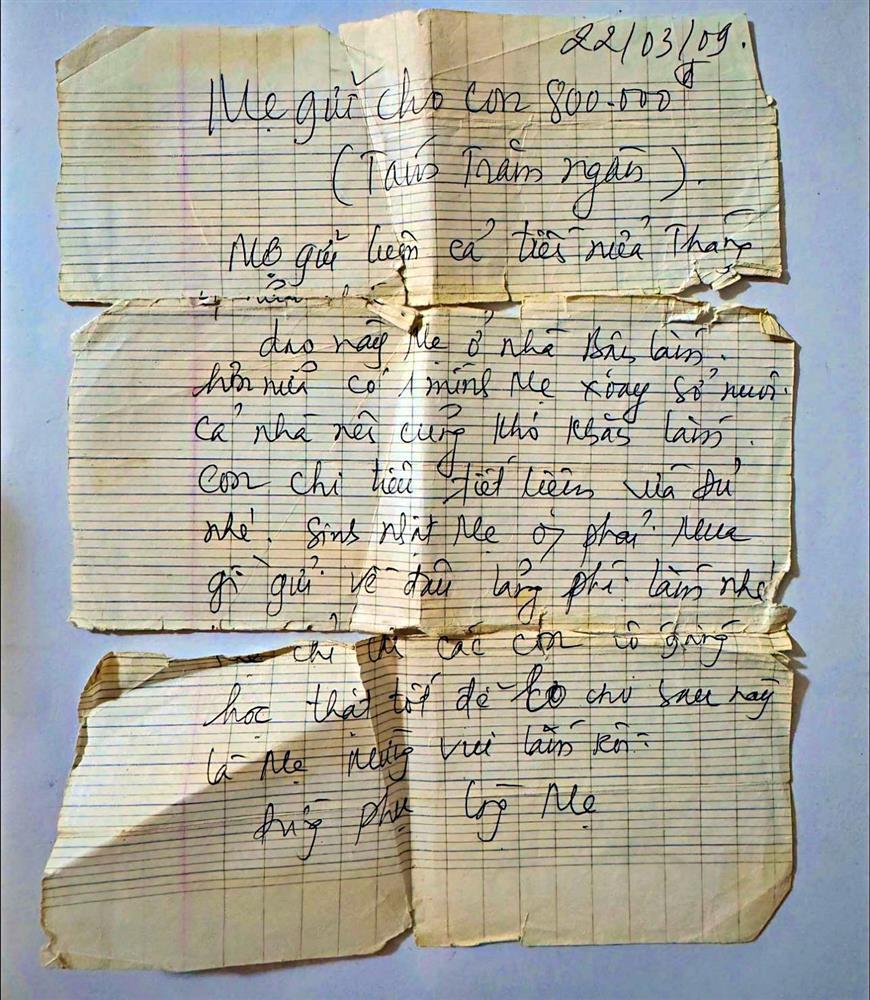 22/03/09.
Mẹ gửi cho con 800.000đ
(Tám Trăm ngàn).
Mẹ gửi luôn cả tiền nửa Tháng
dạo này Mẹ ở nhà Bận lắm.
hơn nữa có 1 mình Mẹ xoay sở nuôi
cả nhà nên cũng khó khăn lắm.
con chi tiêu tiết kiệm vừa đủ
nhé. Sinh nhật Mẹ phải Mua
gì gửi về đâu lãng phí lắm nhé
chỉ các con cố gắng
học thật tốt để lo cho sau này
là Mẹ Mừng vui lắm rồi.
Đừng phụ lòng Mẹ